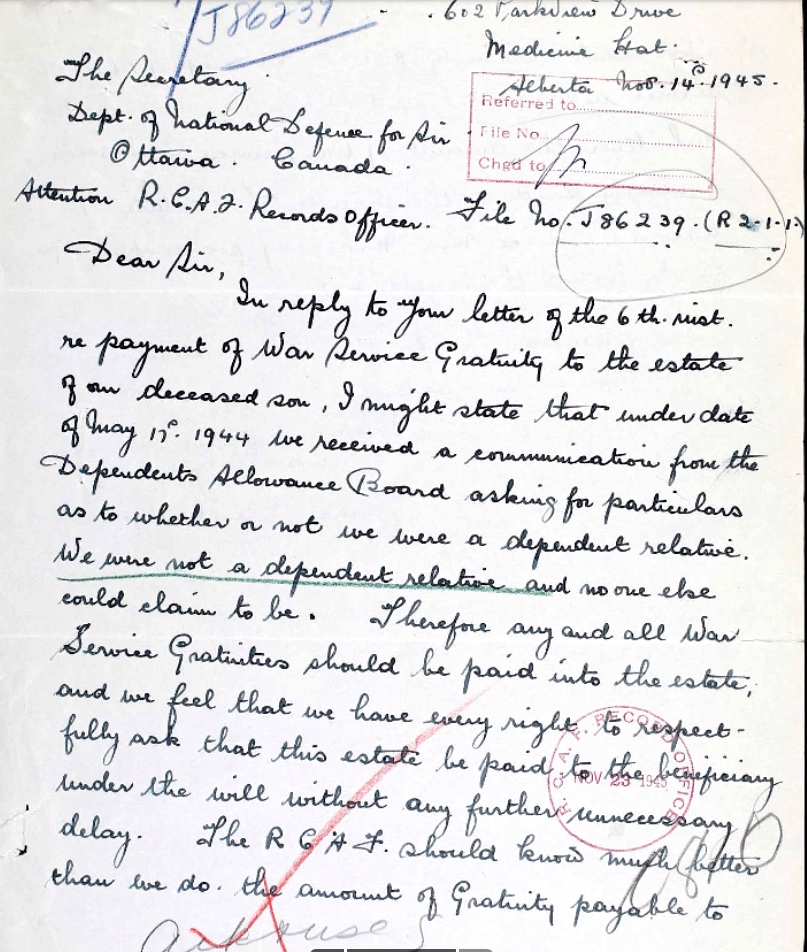 J86239
602 Parkview Drive
Medicine Hat.
Alberta Nov. 14th 1945.
The Secretary
Dept. of National Defence for Air.
Ottawa. Canada.
Referred to
File No.
Chgd to
Attention R.C.A.F. Records Officer. File No. J86239. (R 2-1-1.)
Dear Sir,
In reply to your letter of the 6th. inst.
re payment of War Service Gratuity to the estate
of our deceased son, I might state that under date
of May 1944 we received a communication from the
Dependents Allowance Board asking for particulars
as to whether or not we were a dependent relative.
We were not a dependent relative and no one else
could claim to be. Therefore any and all War
Service Gratuities should be paid into the estate,
and we feel that we have every right to respect-
fully ask that this estate be paid to the beneficiary
under the will without any further unnecessary
delay. The R C A F. should know much better
than we do. the amount of Gratuity payable to
R.C.A.F. RECORD OFFICE
NOV 23 1945